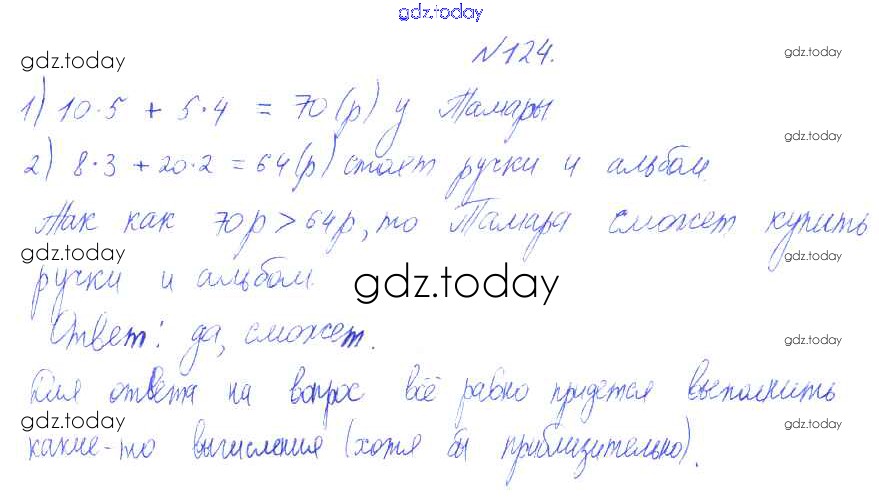 gdz.today
№124.
gdz.today
gdz.today
1) 10·5 + 5·4 = 70(р) у Тамары
gdz.today
2) 8·3 + 20·2 = 64(р) стоят ручки и альбом.
Так как 70р > 64р, то Тамара сможет купить
gdz.today
gdz.today
ручки и альбом.
gdz.today
Ответ: да, сможет.
gdz.today
Для ответа на вопрос всё равно придется выполнить
gdz.today
gdz.today
какие-то вычисления (хотя бы приблизительно).